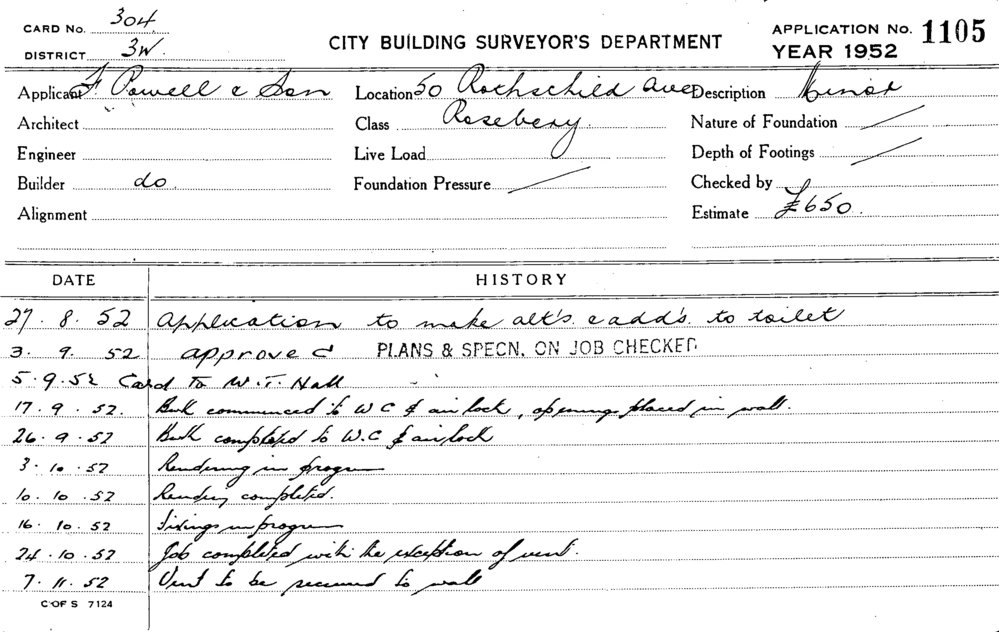 CARD No. 304
DISTRICT 3W.
CITY BUILDING SURVEYOR'S DEPARTMENT
APPLICATION No. 1105
YEAR 1952
Applicant F. Powell & Son Location 50 Rothschild Ave Description Minor
Architect Class Rosebery. Nature of Foundation /
Engineer Live Load Depth of Footings /
Builder do. Foundation Pressure / Checked by
Alignment Estimate £650.
DATE HISTORY
27. 8. 52 Application to make alt's. & add's. to toilet
3. 9. 52 approved PLANS & SPECN. ON JOB CHECKED
5.9.52 Card to W.T. Hall
17. 9. 52. Bwk commenced to W C & air lock, openings placed in wall.
26. 9. 52 Bwk completed to W.C & airlock
3. 10. 52 Rendering in progress
10. 10. 52 Rendering completed.
16. 10. 52 Fixings in progress
24. 10. 52 Job completed with the exception of vent.
7. 11. 52 Vent to be secured to wall
C OF S 7124